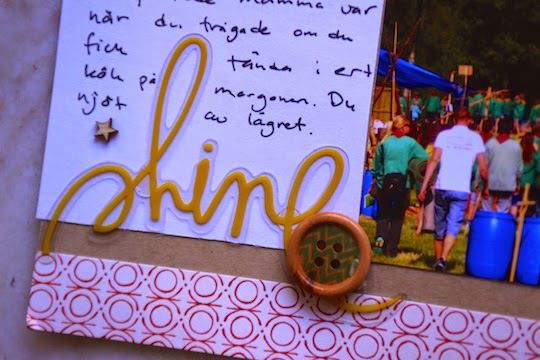 mamma var
når du frågade om du
fick tända i ert
kök på morgonen. Du
njöt av lägret.
shine